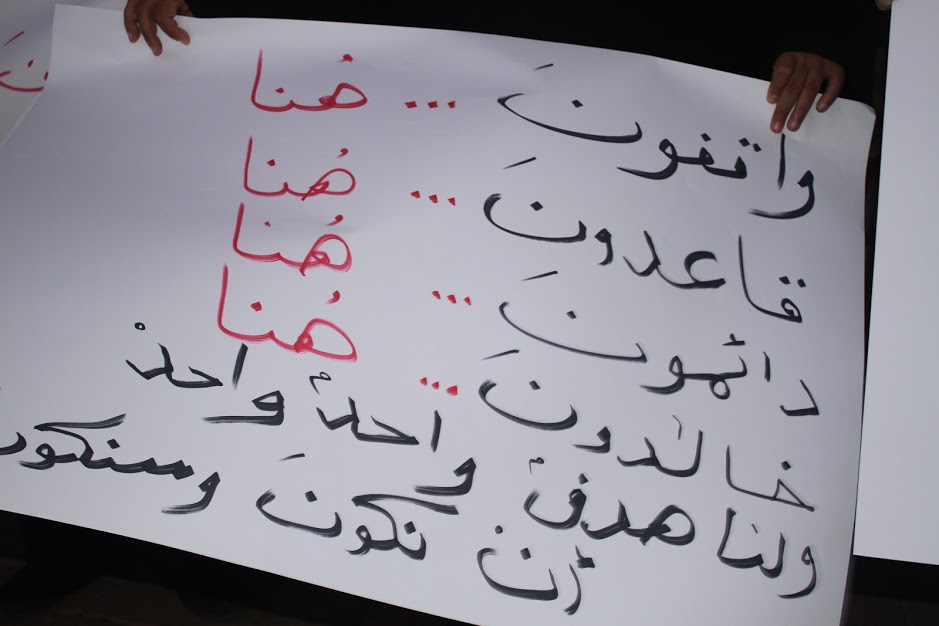 واقفونَ ... هُنا
قاعدونَ ... هُنا
دائمونَ ... هُنا
خالدونَ ... هُنا
ولنا هدفٌ واحدٌ واحدْ
أنْ نكونَ وسنكو